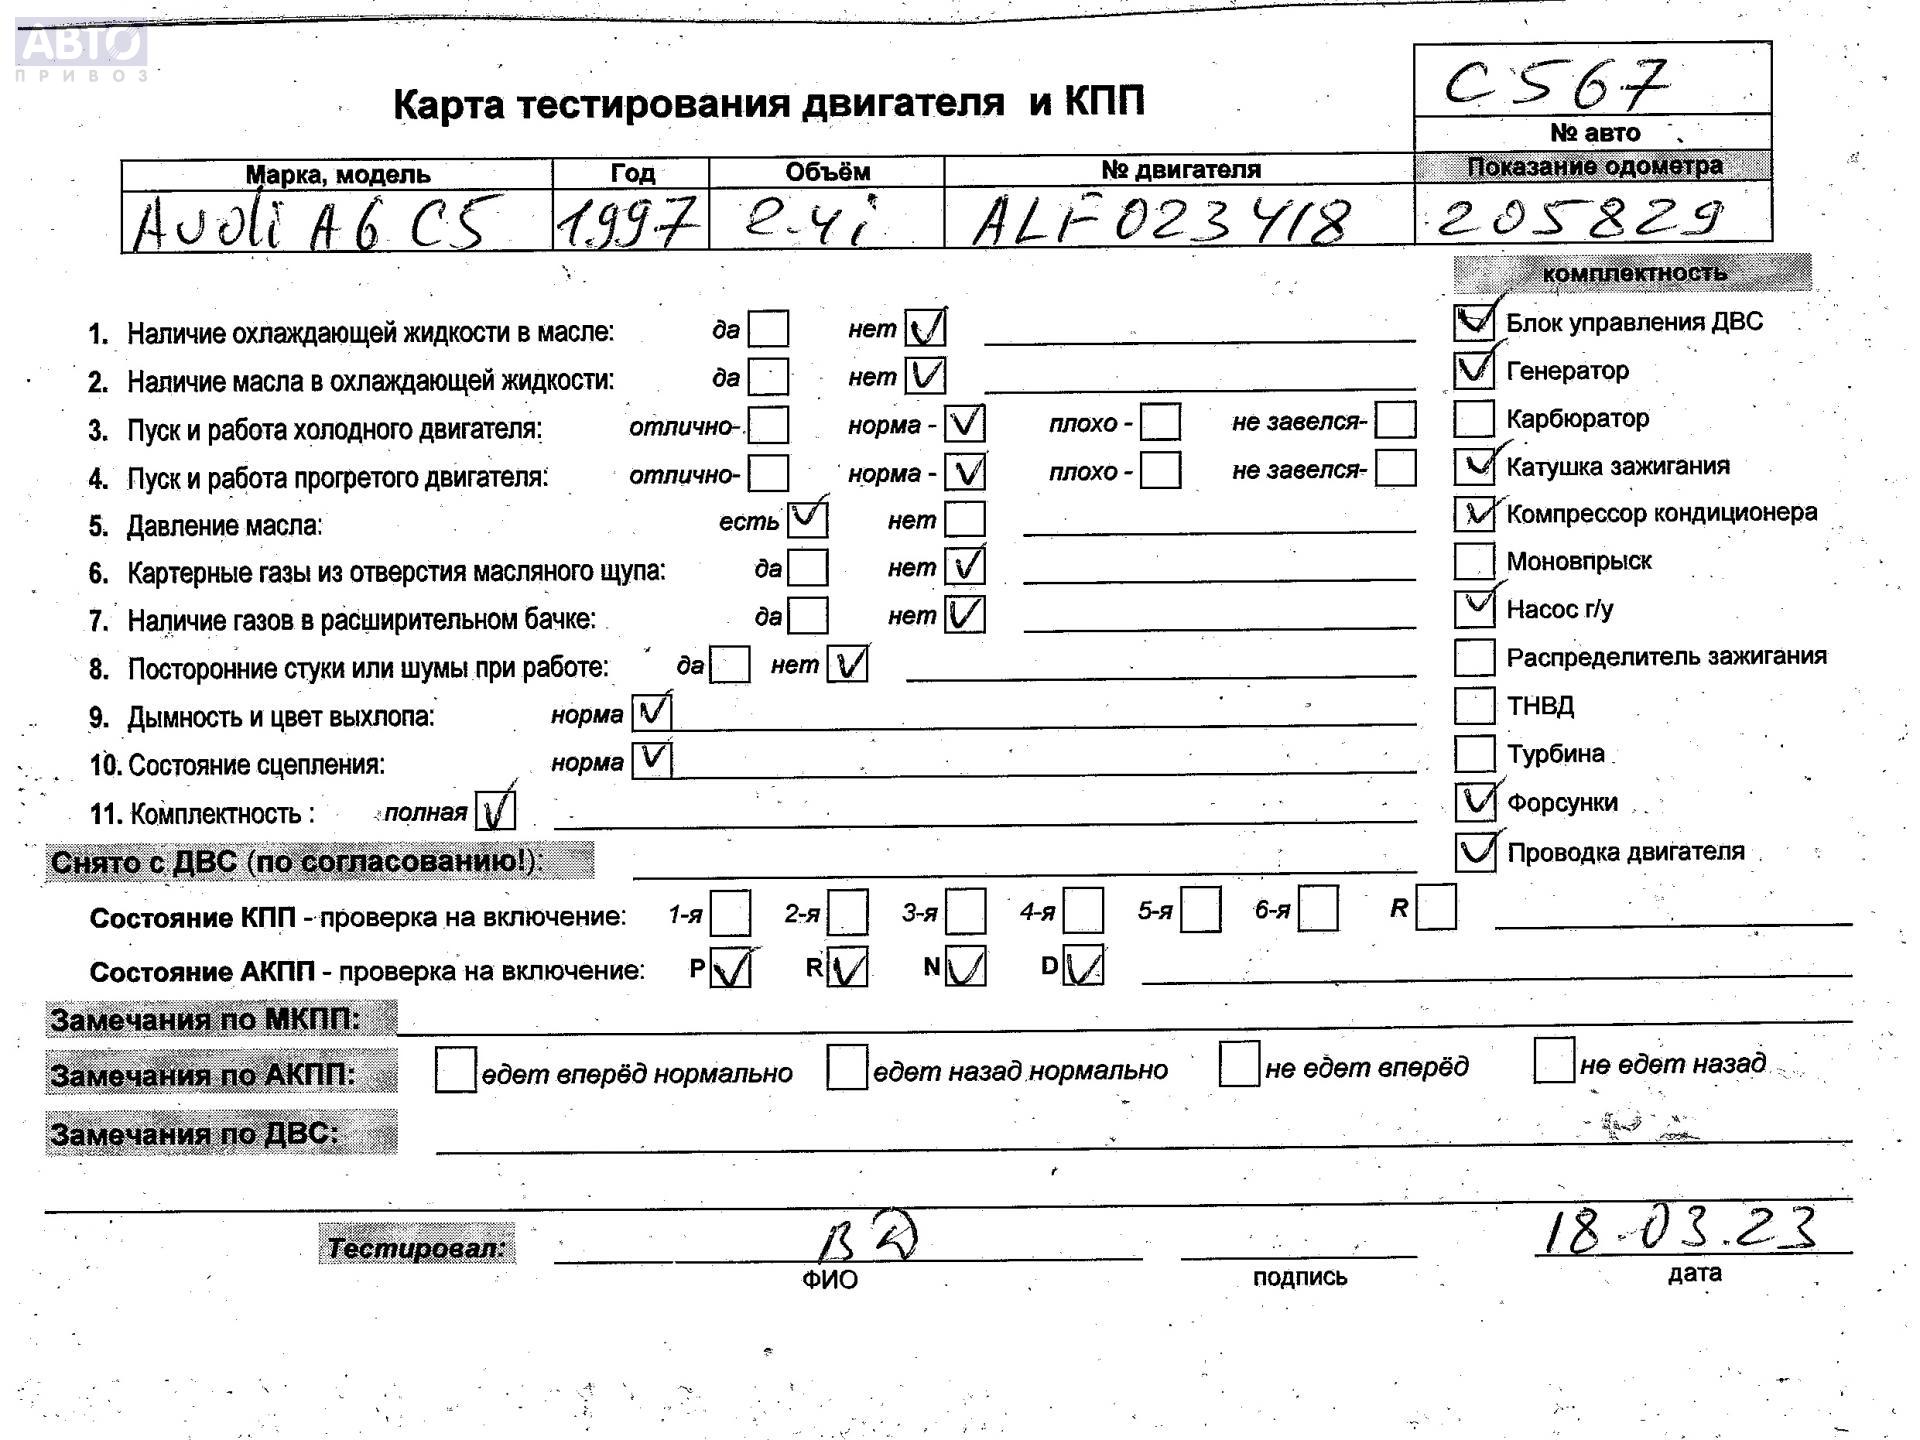 АВТО
ПРИВОЗ
C567
Карта тестирования двигателя и КПП
№ авто
Марка, модель Год Объём № двигателя Показание одометра
Audi A6 C5 1997 2.4i ALF023418 205829
комплектность
1. Наличие охлаждающей жидкости в масле: да нет ✓
✓ Блок управления ДВС
2. Наличие масла в охлаждающей жидкости: да нет ✓
✓ Генератор
3. Пуск и работа холодного двигателя: отлично- норма - ✓ плохо - не завелся-
Карбюратор
4. Пуск и работа прогретого двигателя: отлично- норма - ✓ плохо - не завелся-
✓ Катушка зажигания
5. Давление масла: есть ✓ нет
✓ Компрессор кондиционера
6. Картерные газы из отверстия масляного щупа: да нет ✓
Моновпрыск
7. Наличие газов в расширительном бачке: да нет ✓
✓ Насос г/у
8. Посторонние стуки или шумы при работе: да нет ✓
Распределитель зажигания
9. Дымность и цвет выхлопа: норма ✓
ТНВД
10. Состояние сцепления: норма ✓
Турбина
11. Комплектность : полная ✓
✓ Форсунки
Снято с ДВС (по согласованию!):
✓ Проводка двигателя
Состояние КПП - проверка на включение: 1-я 2-я 3-я 4-я 5-я 6-я R
Состояние АКПП - проверка на включение: P ✓ R ✓ N ✓ D ✓
Замечания по МКПП:
Замечания по АКПП: едет вперёд нормально едет назад нормально не едет вперёд не едет назад
Замечания по ДВС:
Тестировал: 18.03.23
ФИО подпись дата